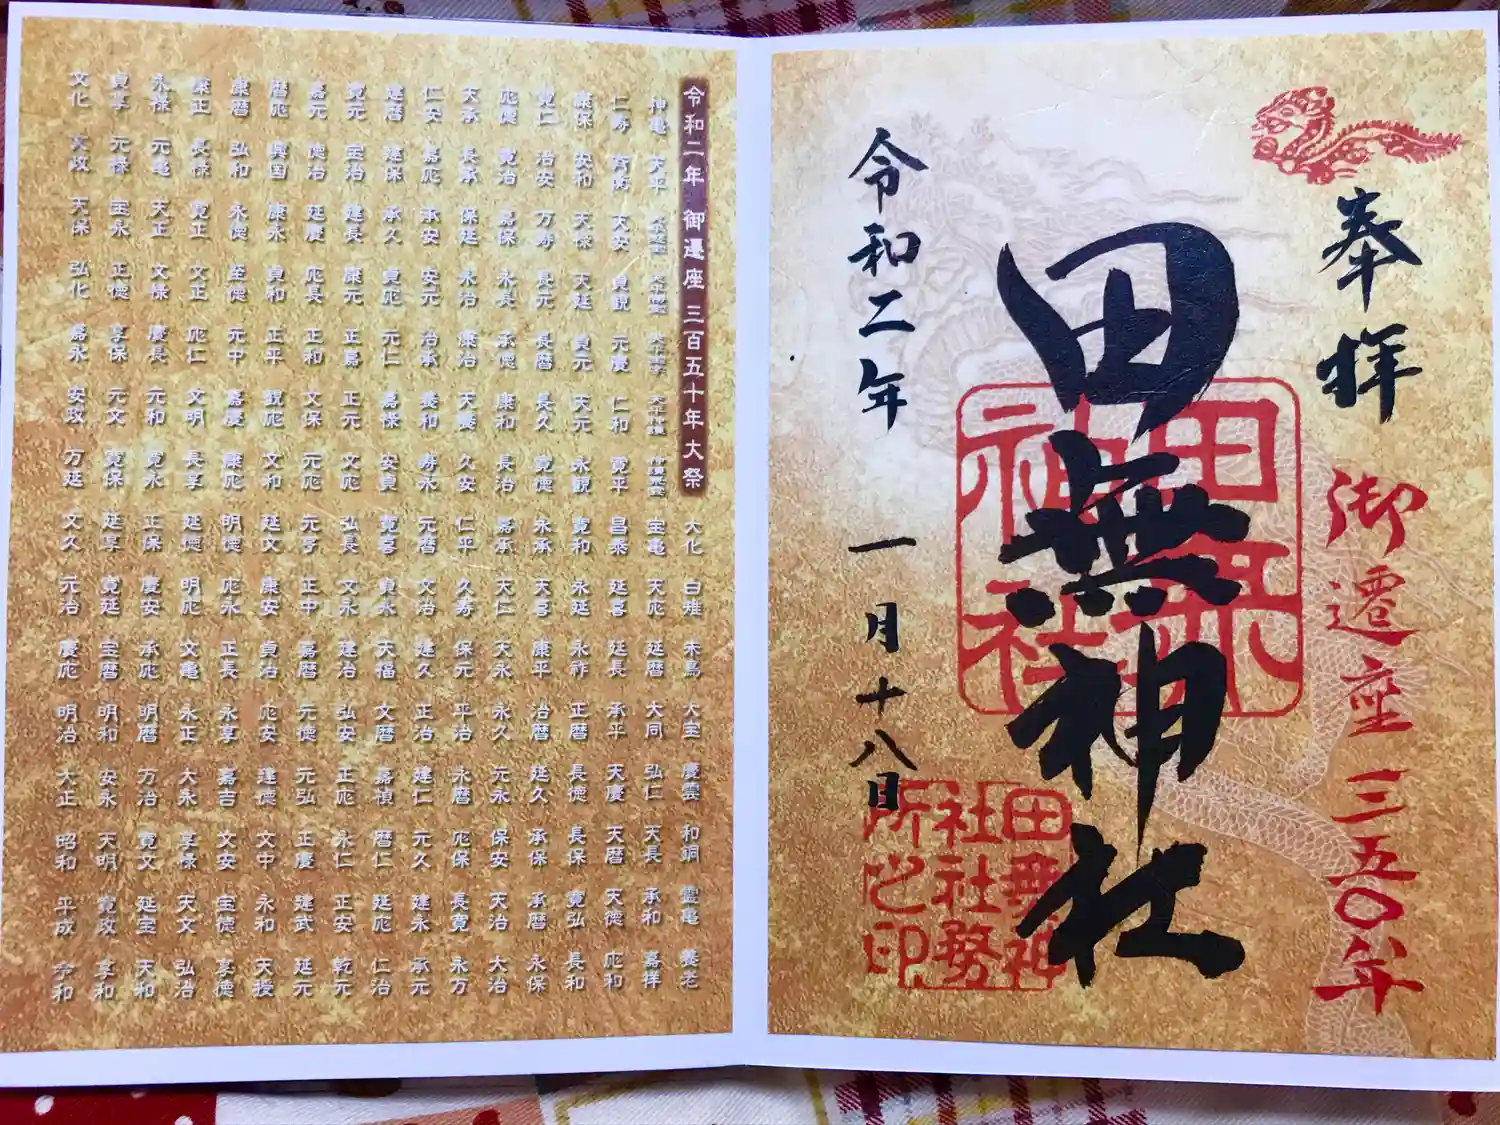 奉拝
御遷座三五〇年
田無神社
田無神社
田無神社社務所之印
令和二年 一月十八日
令和二年 御遷座 三百五十年 大祭 大化 白雉 朱鳥 大宝 慶雲 和銅 霊亀 養老
神亀 天平 天平感宝 天平勝宝 天平宝字 天平神護 神護景雲 宝亀 天応 延暦 大同 弘仁 天長 承和 嘉祥
仁寿 斉衡 天安 貞観 元慶 仁和 寛平 昌泰 延喜 延長 承平 天慶 天暦 天徳 応和
康保 安和 天禄 天延 貞元 天元 永観 寛和 永延 永祚 正暦 長徳 長保 寛弘 長和
寛仁 治安 万寿 長元 長暦 長久 寛徳 永承 天喜 康平 治暦 延久 承保 承暦 永保
応徳 寛治 嘉保 永長 承徳 康和 長治 嘉承 天仁 天永 永久 元永 保安 天治 大治
天承 長承 保延 永治 康治 天養 久安 仁平 久寿 保元 平治 永暦 応保 長寛 永万
仁安 嘉応 承安 安元 治承 養和 寿永 元暦 文治 建久 正治 建仁 元久 建永 承元
建暦 建保 承久 貞応 元仁 嘉禄 安貞 寛喜 貞永 天福 文暦 嘉禎 暦仁 延応 仁治
寛元 宝治 建長 康元 正嘉 正元 文応 弘長 文永 建治 弘安 正応 永仁 正安 乾元
嘉元 徳治 延慶 応長 正和 文保 元応 元亨 正中 嘉暦 元徳 元弘 正慶 建武 延元
暦応 興国 康永 貞和 正平 観応 文和 延文 康安 貞治 応安 建徳 文中 永和 天授
康暦 弘和 永徳 至徳 元中 嘉慶 康応 明徳 応永 正長 永享 嘉吉 文安 宝徳 享徳
康正 長禄 寛正 文正 応仁 文明 長享 延徳 明応 文亀 永正 大永 享禄 天文 弘治
永禄 元亀 天正 文禄 慶長 元和 寛永 正保 慶安 承応 明暦 万治 寛文 延宝 天和
貞享 元禄 宝永 正徳 享保 元文 寛保 延享 寛延 宝暦 明和 安永 天明 寛政 享和
文化 文政 天保 弘化 嘉永 安政 万延 文久 元治 慶応 明治 大正 昭和 平成 令和